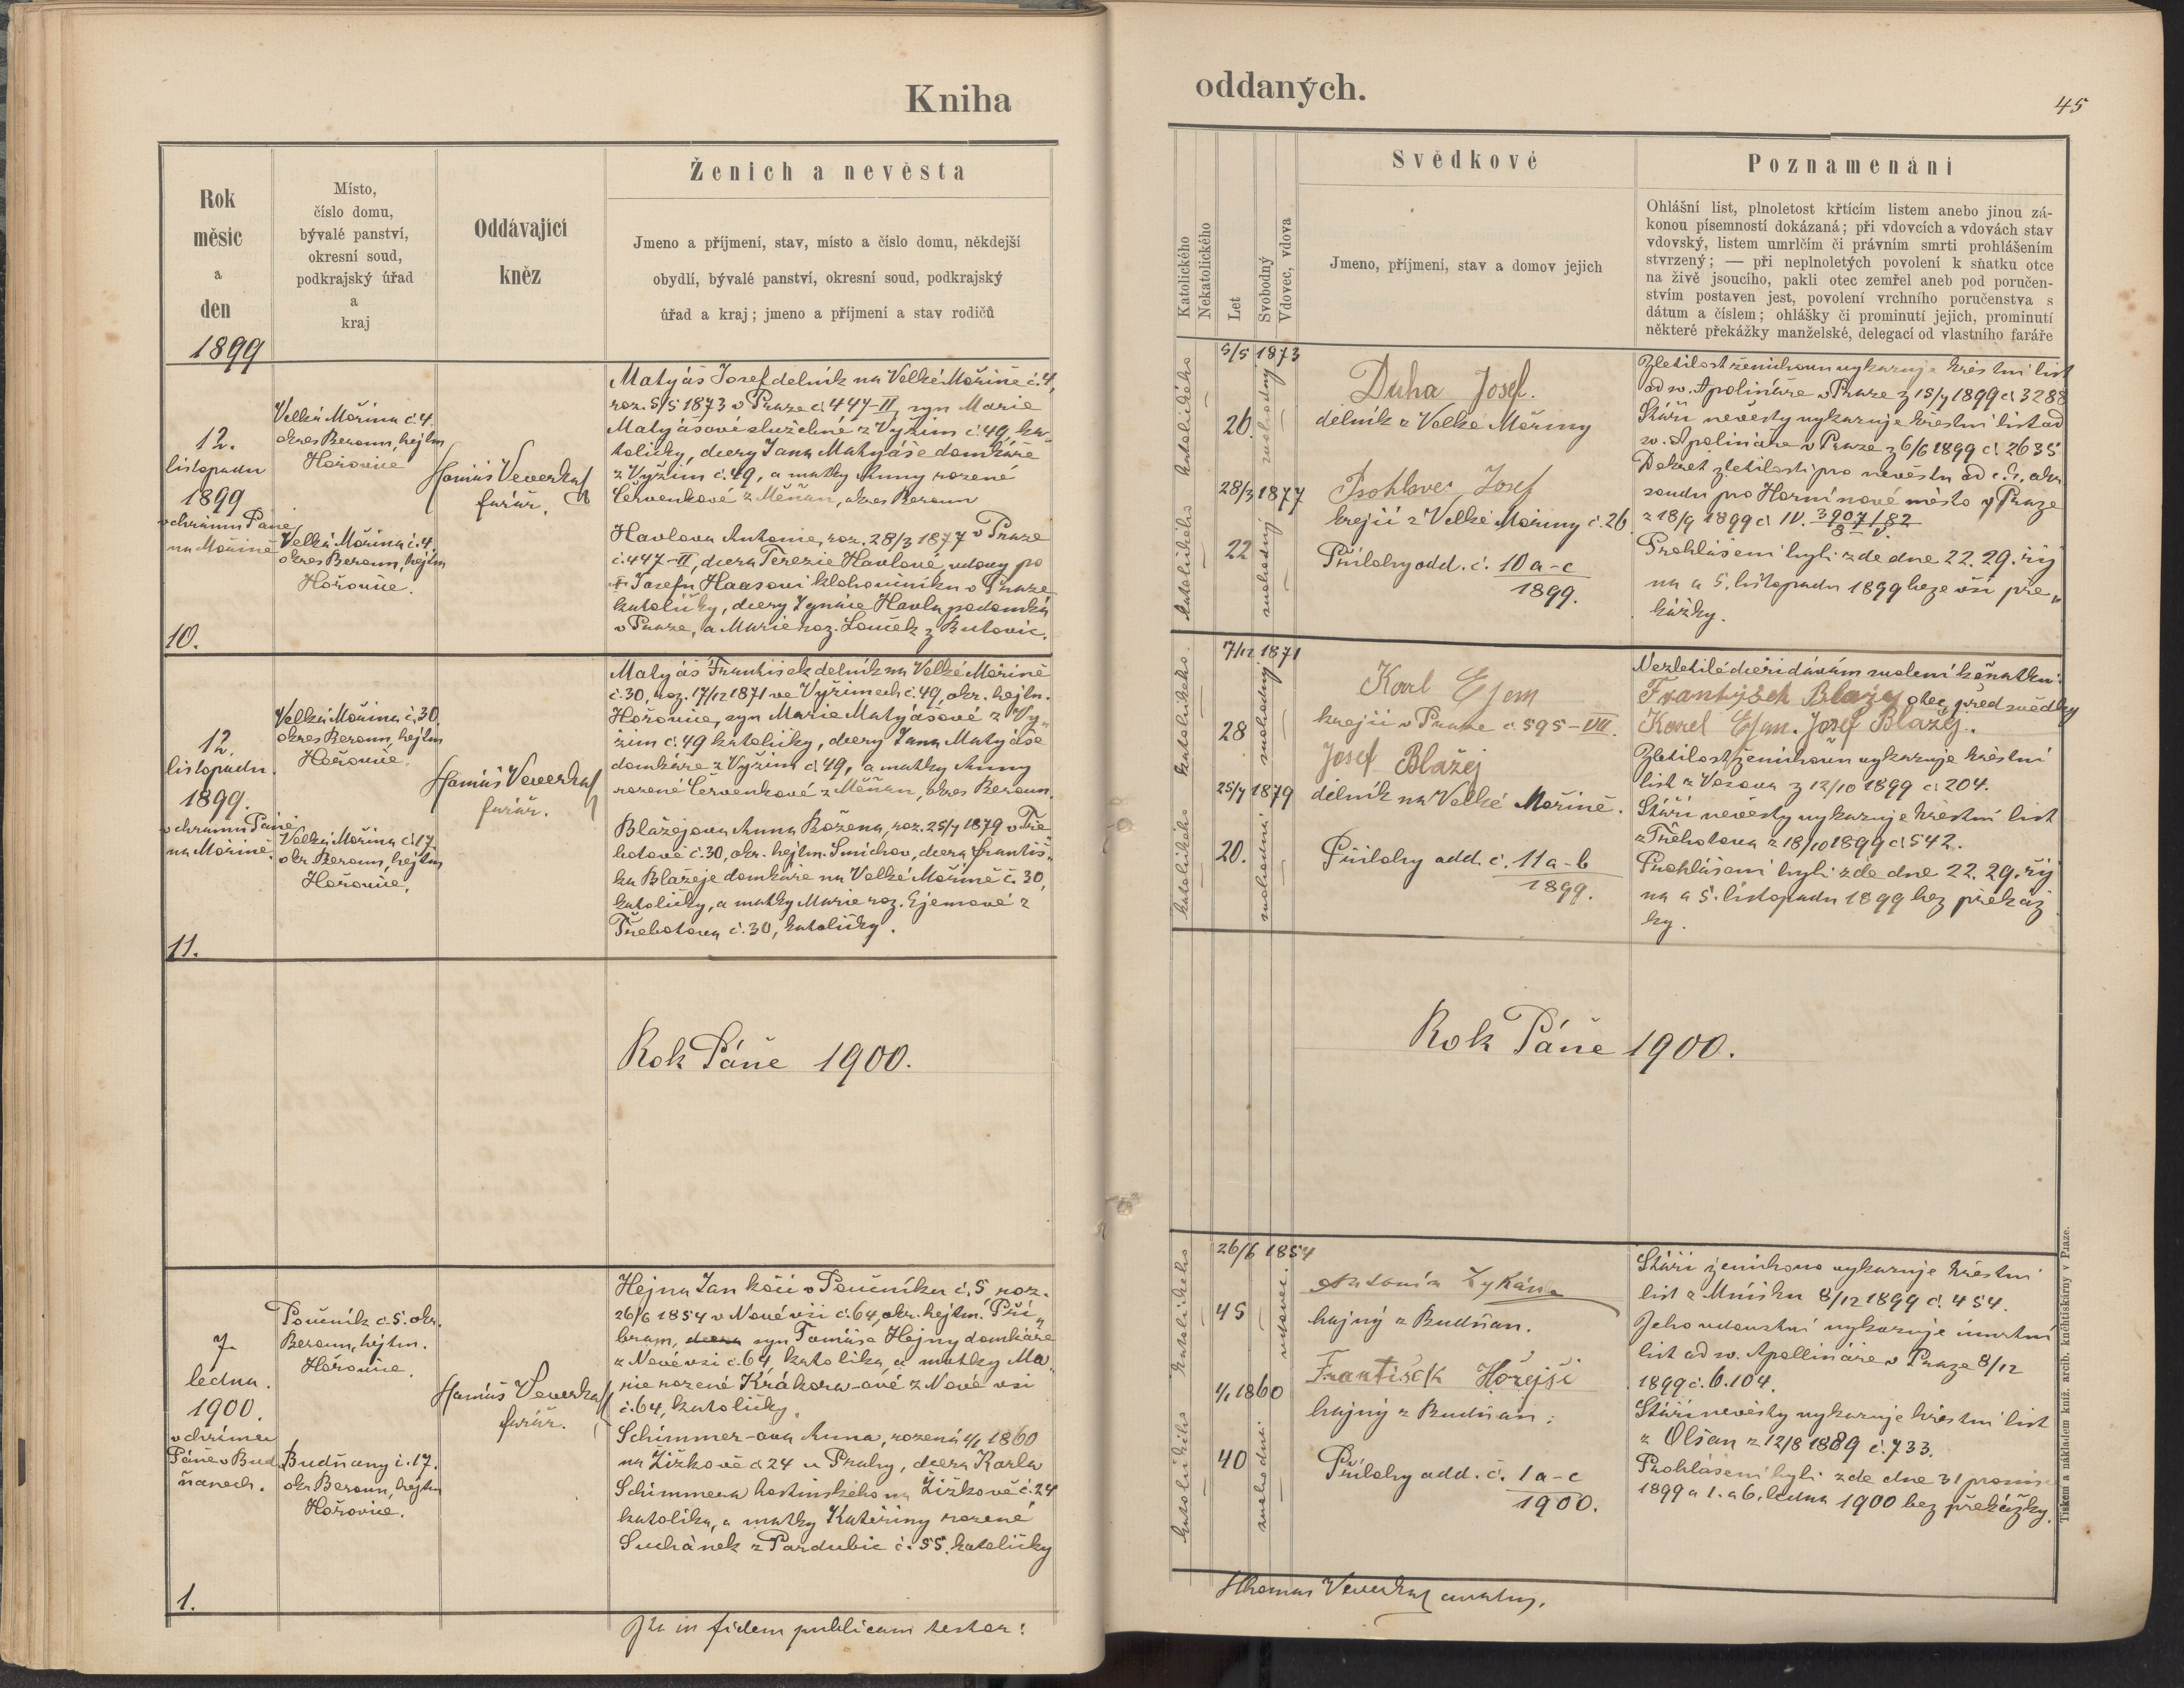 Kniha
Rok
měsíc
a
den
1899
Místo,
číslo domu,
bývalé panství,
okresní soud,
podkrajský úřad
a
kraj
Oddávající
kněz
Ženich a nevěsta
Jmeno a příjmení, stav, místo a číslo domu, někdejší
obydlí, bývalé panství, okresní soud, podkrajský
úřad a kraj; jmeno a příjmení a stav rodičů
12.
listopadu
1899
v chrámu Páně
na Mořině
10.
Velká Mořina č. 4.
okres Beroun, hejtm
Hořovice
Velká Mořina č. 4.
okres Beroun, hejtm
Hořovice.
Tomáš Veverka
farář.
Matyáš Josef dělník na Velké Mořině č. 4,
roz. 5/5 1873 v Praze č. 447-II, syn Marie
Matyášové služebné z Vyžim č. 49, ka-
toličky, dcery Jana Matyáše domkáře
z Vyžim č. 49, a matky Anny rozené
Červenkové z Měňan, okres Beroun
Havlova Antonie, roz. 28/3 1877 v Praze
č. 447-II, dcera Terezie Havlové, vdovy po
† Josefu Haasovi kloboučníku v Praze
katoličky, dcery Ignáce Havla podomka
v Praze, a Marie roz. Souček z Butovic.
12.
listopadu.
1899.
v chrámu Páně
na Mořině.
11.
Velká Mořina č. 30.
okres Beroun, hejtm
Hořovice.
Velká Mořina č. 17.
okr. Beroun, hejtm
Hořovice.
Tomáš Veverka
farář.
Matyáš František dělník na Velké Mořině
č. 30, roz. 17/12 1871 ve Vyžimech č. 49, okr. hejtm.
Hořovice, syn Marie Matyášové z Vy„
žim č. 49 katoličky, dcery Jana Matyáše
domkáře z Vyžim č. 49, a matky Anny
rozené Červenkové z Měňan, okres Beroun.
Blažejova Anna Božena, roz. 25/7 1879 v Tře
botově č. 30, okr. hejtm. Smíchov, dcera Františ„
ka Blažeje domkáře na Velké Mořině č. 30,
katolíky, a matky Marie roz. Ejemové z
Třebotova č. 30, katoličky.
Rok Páně 1900.
7.
ledna.
1900.
v chrámu
Páně v Bud
ňanech.
1.
Poučník č. 5. okr.
Beroun, hejtm.
Hořovice.
Budňany č. 17.
okr. Beroun, hejtm
Hořovice.
Tomáš Veverka
farář.
Hejna Jan kočí v Poučníku č. 5 roz.
26/6 1854 v Nové vsi č. 64, okr. hejtm. Pří„
bram, dcera syn Tomáše Hejny domkáře
z Nové vsi č. 64, katolíka, a matky Ma„
rie rozené Krákora-ové z Nové vsi
č. 64, katoličky.
Schimmer-ova Anna, rozená 4/1 1860
na Žižkově č. 24 u Prahy, dcera Karla
Schimmera hostinského na Žižkově č. 24
katolíka, a matky Kateřiny rozené
Suchánek z Pardubic č. 55. katoličky
Ita in fidem publicam testor:
oddaných.
45
Katolického
Nekatolického
Let
Svobodný
Vdovec, vdova
Svědkové
Jmeno, příjmení, stav a domov jejich
Poznamenání
Ohlášní list, plnoletost křtícím listem anebo jinou zá-
konou písemností dokázaná; při vdovcích a vdovách stav
vdovský, listem umrlčím či právním smrti prohlášením
stvrzený; — při neplnoletých povolení k sňatku otce
na živě jsoucího, pakli otec zemřel aneb pod poručen-
stvím postaven jest, povolení vrchního poručenstva s
dátum a číslem; ohlášky či prominutí jejich, prominutí
některé překážky manželské, delegací od vlastního faráře
katolického
5/5 1873
26.
svobodný
katolického
28/3 1877
22
svobodný
Duha Josef.
dělník z Velké Mořiny
Psohlavec Josef
krejčí z Velké Mořiny č. 26
Přílohy odd. č. 10 a-c
1899.
Zletilost ženichovu vykazuje křestní list
od sv. Apolináře v Praze z 15/7 1899 č. 3288
Stáří nevěsty vykazuje křestní list od
sv. Apolináře v Praze z 6/6 1899 č. 2635
Dekret zletilosti pro nevěstu od c. k. okr.
soudu pro Horní nové město v Praze
z 18/9 1899 č. IV. 3907/82
8 V.
Prohlášeni byli zde dne 22. 29. říj
na a 5. listopadu 1899 beze vší pře„
kážky.
katolického.
17/12 1871
28
svobodný
katolického
25/7 1879
20.
svobodná
Karl Ejem
krejčí v Praze č. 595-VII.
Josef Blažej
dělník na Velké Mořině.
Přílohy odd. č. 11 a-b
1899.
Nezletilé dceři dávám svolení k sňatku:
Frantyšek Blažej otec, před svědky
Karel Ejem. Josef Blažej.
Zletilost ženichovu vykazuje křestní
list z 12/10 1899 č. 204.
Stáří nevěsty vykazuje křestní list
z Třebotova z 18/10 1899 č. 542.
Prohlášeni byli zde dne 22. 29. říj
na a 5. listopadu 1899 bez překáž
ky.
Rok Páně 1900.
katolického
26/6 1854
45
vdovec.
katolického
4/1 1860
40
svobodná
Antonín Zykán
hajný z Budňan.
František Hořejší
hajný z Budňan.
Přílohy odd. č. 1 a-c
1900.
Stáří ženichovo vykazuje křestní
list z Mníšku 8/12 1899 č. 454.
Jeho vdovství vykazuje úmrtní
list od sv. Apollináře v Praze 8/12
1899 č. 6.104.
Stáří nevěsty vykazuje křestní list
z Olšan z 12/8 1889 č. 733.
Prohlášeni byli zde dne 31 prosin
1899 a 1. a 6. ledna 1900 bez překážky.
Thomas Veverka curatus.
Tiskem a nákladem kníž. arcib. knihtiskárny v Praze.